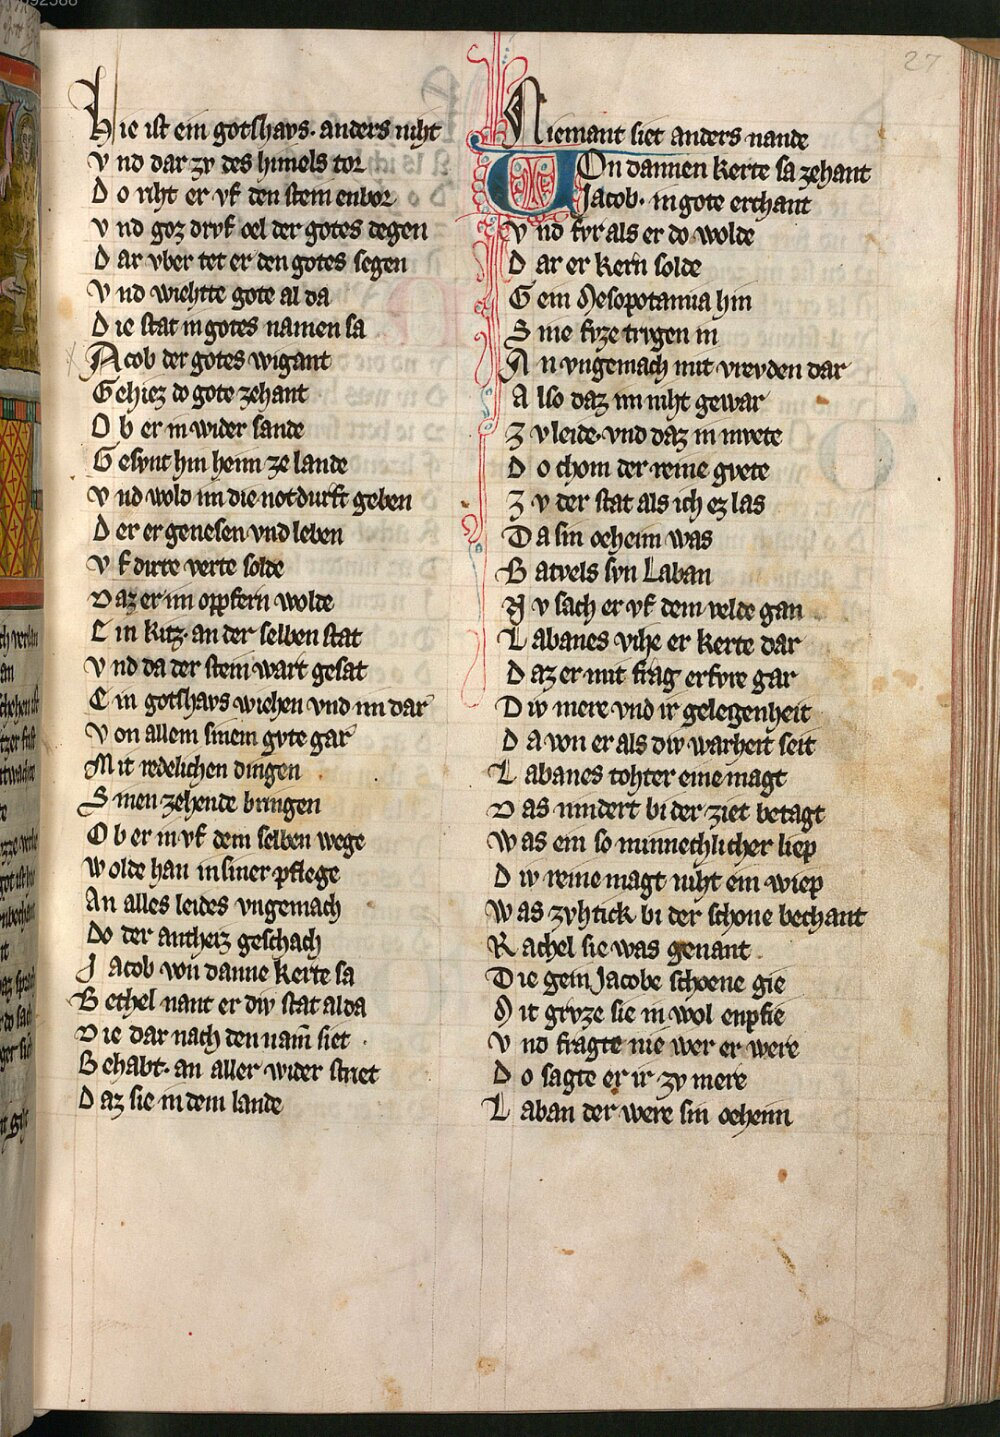 27
Hie ist ein gotshavs. anders niht
Vnd dar zv des himels tor
Do riht er vf den stein enbor
Vnd goz drvf oel der gotes degen
Dar vber tet er den gotes segen
Vnd wiehtte gote al da
Die stat in gotes namen sa
Jacob der gotes wigant
Gehiez do gote zehant
Ob er in wider sande
Gesvnt hin heim ze lande
Vnd wold im die notdurft geben
Der er genesen vnd leben
Vf dirre verte solde
Daz er im oppfern wolde
Ein kitz. an der selben stat
Vnd da der stein wart gesat
Ein gotshavs wiehen vnd im dar
Von allem sinem gvte gar
Mit redelichen dingen
Sinen zehende bringen
Ob er in vf dem selben wege
Wolde han in siner pflege
An alles leides vngemach
Do der antheiz geschach
Jacob von danne kerte sa
Bethel nant er div stat alda
Die dar nach den nam siet
Behabt. an aller wider striet
Daz sie in dem lande
Niemant siet anders nande
Von dannen kerte sa zehant
Jacob. in gote erchant
Vnd fvr als er do wolde
Dar er kern solde
Gein Mesopotamia hin
Sine fvze trvgen in
An vngemach mit vrevden dar
Also daz im niht gewar
Zv leide. vnd daz in mvete
Do chom der reine gvete
Zv der stat als ich ez las
Da sin oeheim was
Batvels svn Laban
Nv sach er vf dem velde gan
Labanes vihe er kerte dar
Daz er mit frag erfvre gar
Div mere vnd ir gelegenheit
Da von er als div warheit seit
Labanes tohter eine magt
Das nindert bi der ziet betagt
Was ein so minnechlicher liep
Div reine magt niht ein wiep
Was zvhtick bi der schone bechant
Rachel sie was genant
Die gein Jacobe schoene gie
Mit grvze sie in wol enpfie
Vnd fragte nie wer er were
Do sagte er ir zv mere
Laban der were sin oeheim